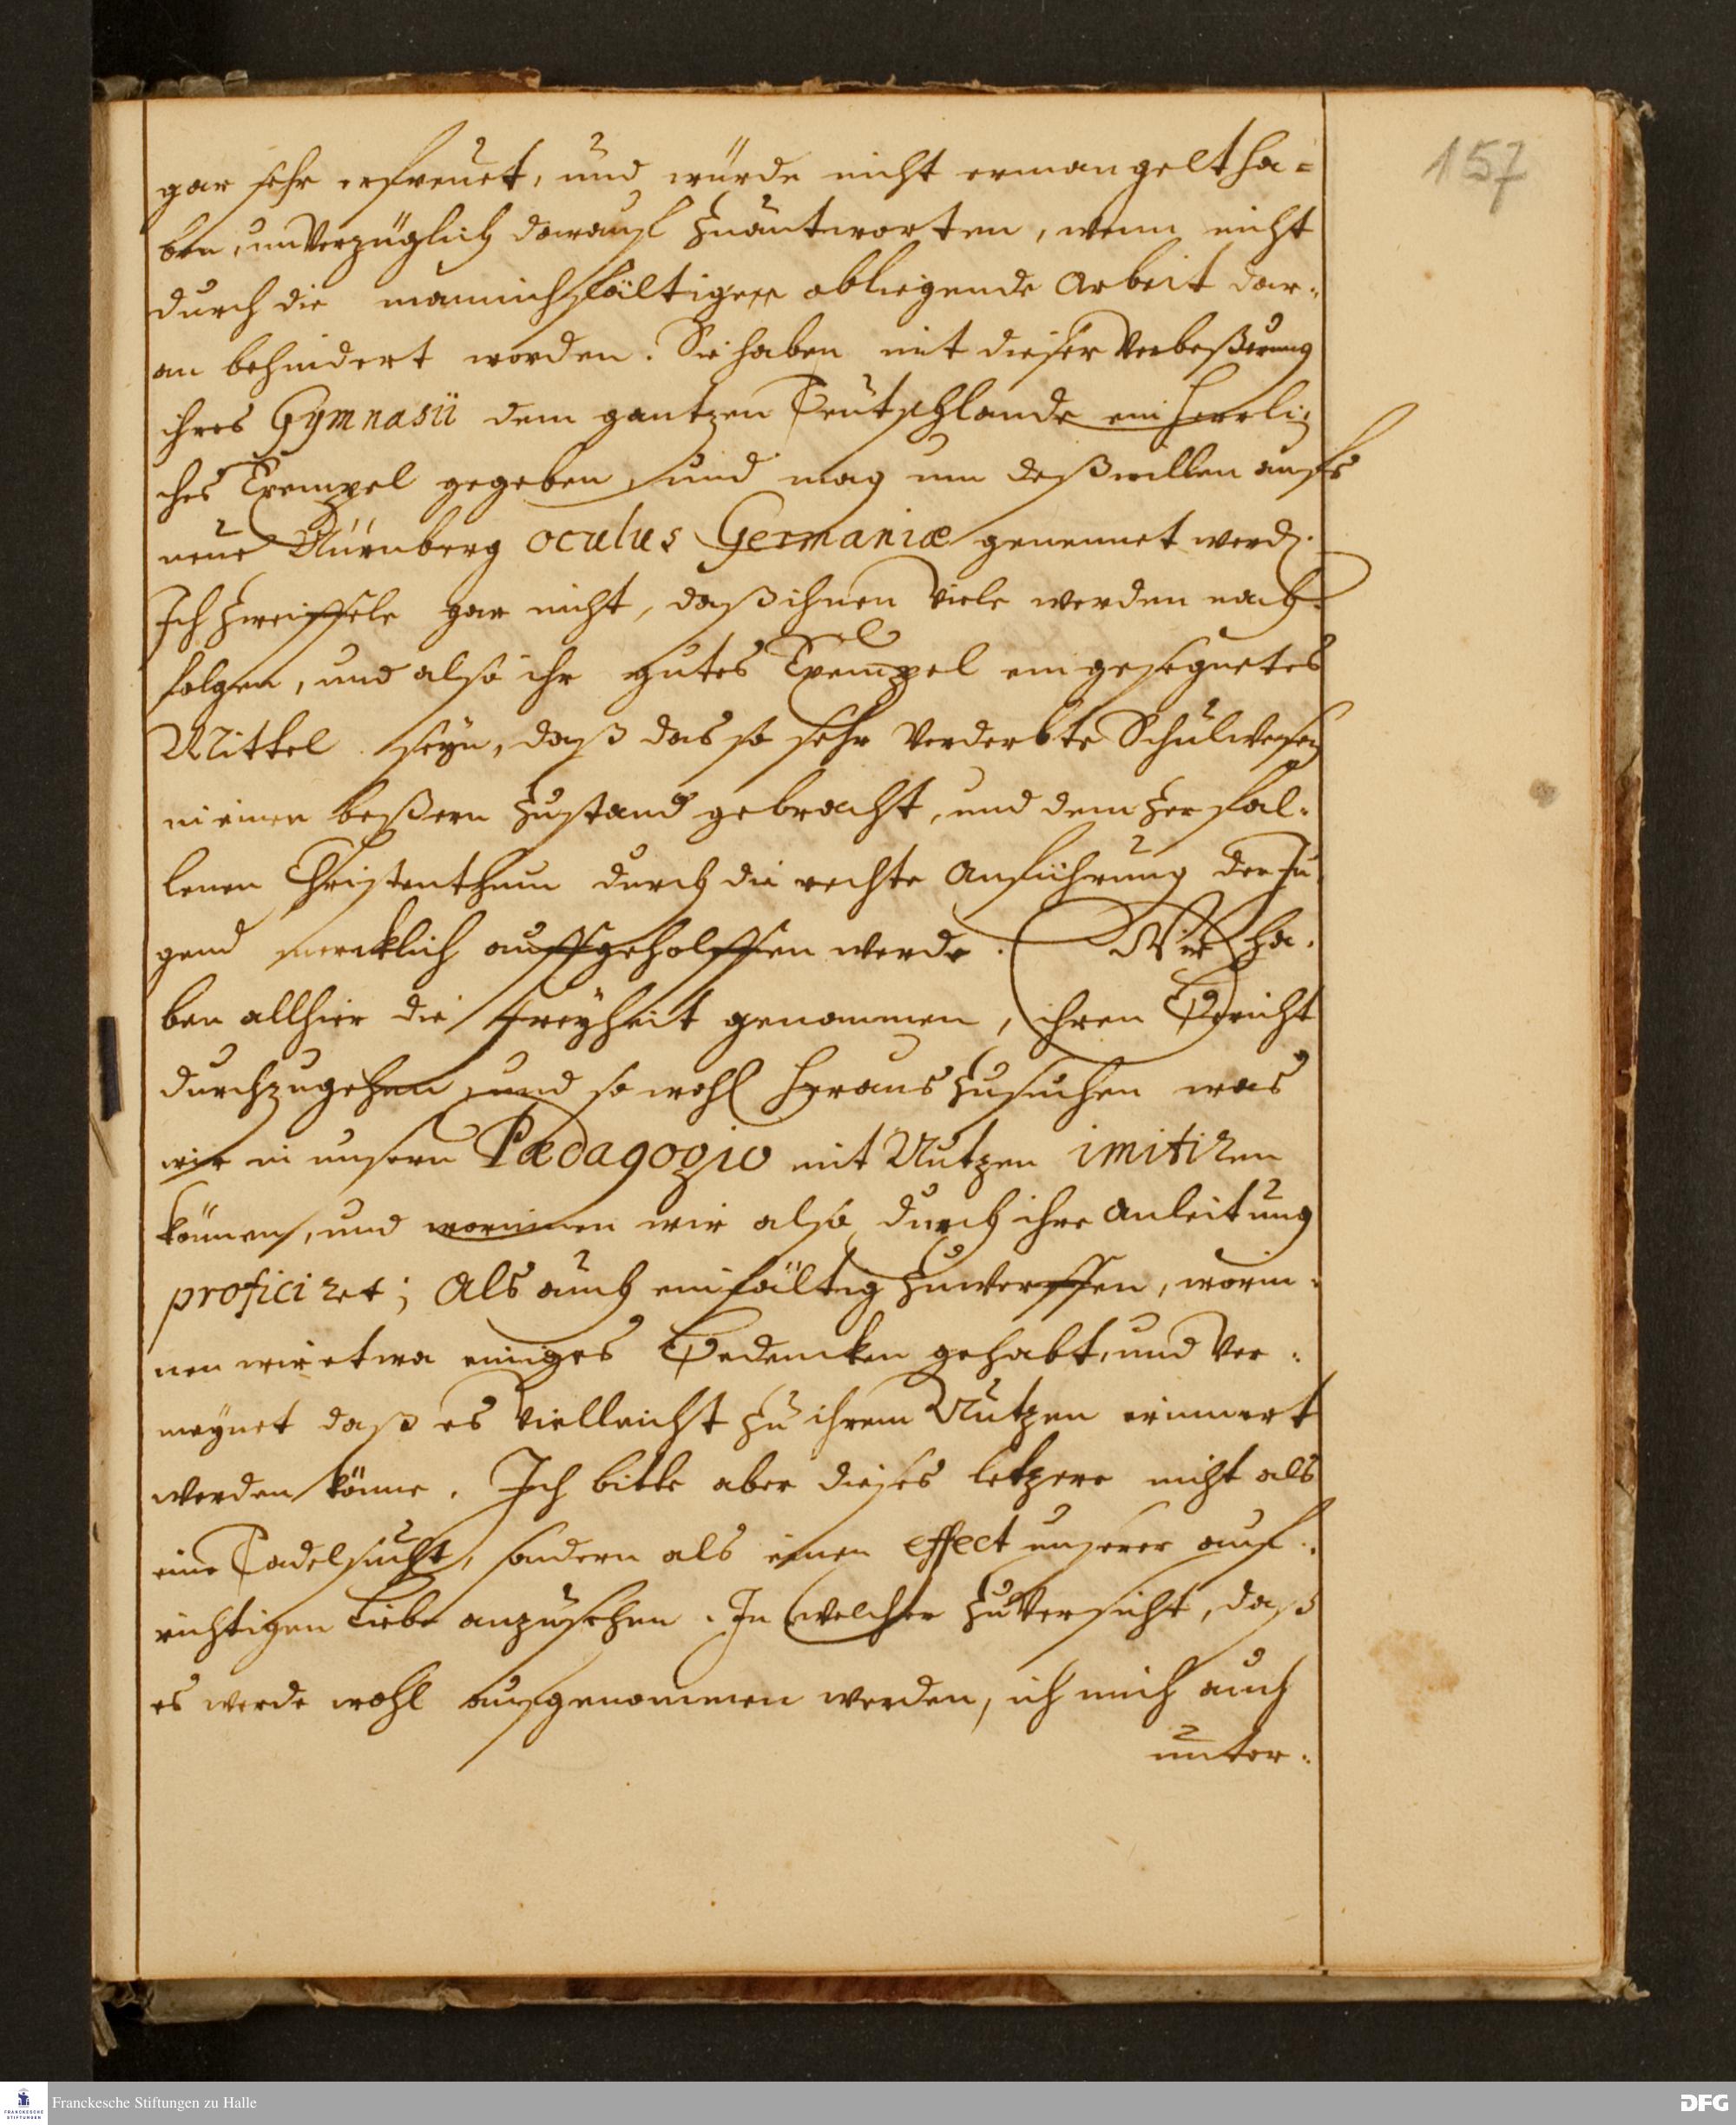 157
gar sehr erfreuet, und würde nicht ermangelt ha=
ben, unverzüglich darauf zuantworten, wenn nicht
durch die mannichfältigen obliegende Arbeit dar=
an behindert worden. Sie haben mit dieser Verbeßerung
ihres Gymnasii dem gantzen Teutschlande ein herrli=
ches Exempel gegeben, und mag um deßwillen aufs
neue Nürnberg oculus Germaniæ genennet werd.
Ich zweiffele gar nicht, daß ihnen viele werden nach=
folgen, und also ihr gutes Exempel ein gesegnetes
Mittel seyn, daß das so sehr verderbte Schulwesen
in einen beßern Zustand gebracht, und dem zerfal=
lenen Christenthum durch die rechte Anführung der Ju=
gend mercklich auffgeholffen werde. Wir ha=
ben allhier die Freyheit genommen, ihren Bericht
durchzugehen, und so wohl herauszusuchen was
wir in unserm Pædagogio mit Nutzen imitiren
können, und worinnen wir also durch ihre Anleitung
proficiret; Als auch einfältig zuwerffen, worin=
nen wir etwa einiges Bedencken gehabt, und ver=
meynet daß es vielleicht zu ihrem Nutzen erinnert
werden könne. Ich bitte aber dieses letzere nicht als
eine Tadelsucht, sondern als einen effect unserer auf=
richtigen Liebe anzusehen. In welcher Zuversicht, daß
es werde wohl aufgenommen werden, ich mich auch
unter=
Franckesche Stiftungen zu Halle
DFG